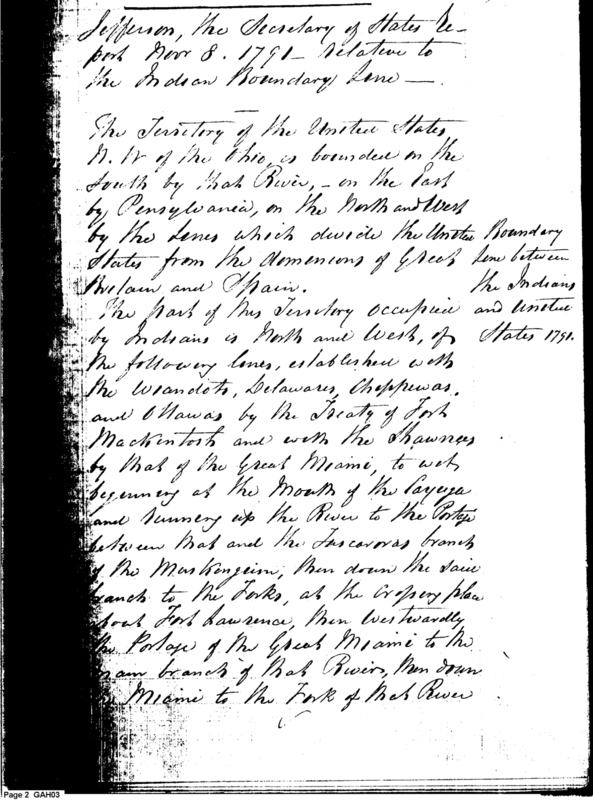 Jefferson, the Secretary of States Re-
port Novr 8. 1791 - relative to
the Indian Boundary Line -
The Territory of the United States
N. W of the Ohio, is bounded on the
South by that River, - on the East
by Pensylvania, on the North and West
by the Lines which divide the United
States from the domenions of Great
Britain and Spain.
Boundary
Line between
the Indians
and United
States 1791.
The part of this Territory occupied
by Indians is North and West, of
the following lines, established with
the Wiandots, Delawares, Chippewas,
and Ottawas by the Treaty of Fort
Mackintosh and with the Shawnees
by that of the Great Miami, to wit,
beginning at the Mouth of the Cayuga
and running up the River to the Portage
between that and the Tuscaroras branch
of the Muskengum, then down the said
branch to the Forks, at the crossing place
about Fort Lawrence, then Westwardly
the Portage of the Great Miami to the
main branch of that River, then down
the Miami to the Fork of that River
Page 2 GAH03